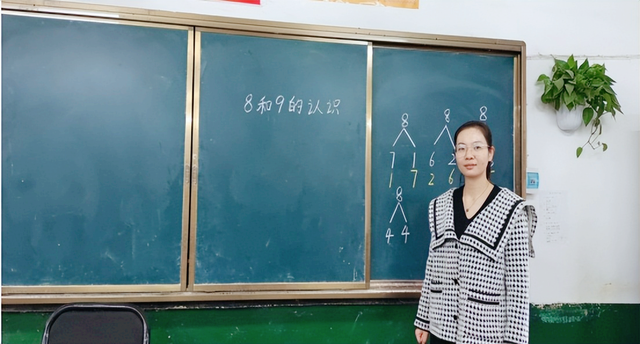 8和9的认识
8 8 8
7 1 6 2
1 7 2 6
8
4 4